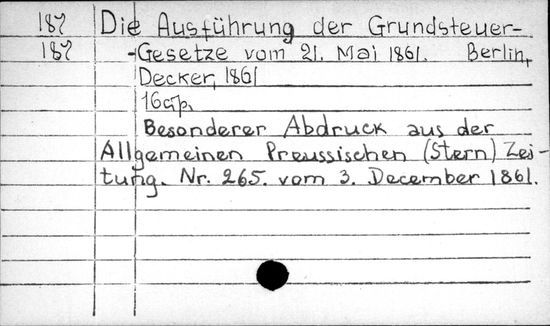 187 Die Ausführung der Grundsteuer-
187 -Gesetze vom 21. Mai 1861. Berlin,
Decker, 1861
16 S.
Besonderer Abdruck aus der
Allgemeinen Preussischen (Stern) Zei-
tung. Nr. 265. vom 3. December 1861.